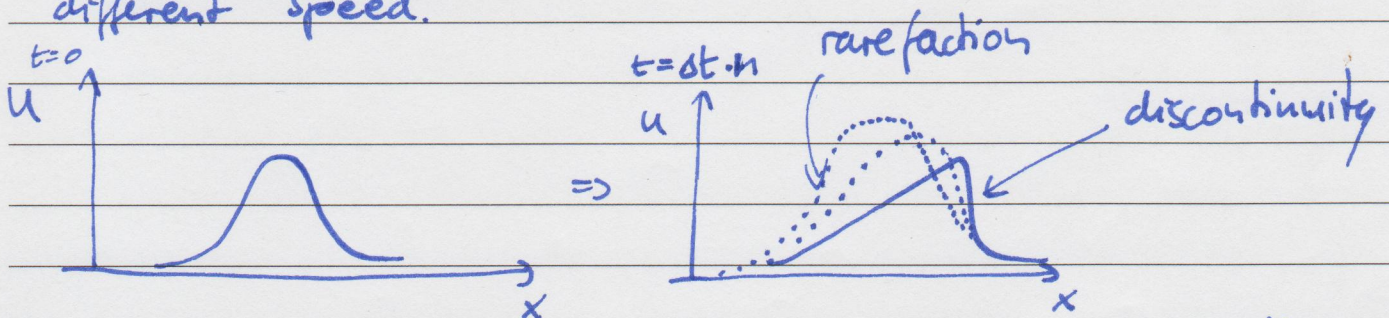 different speed.
t=0
t=Δt·n
rarefaction
u
u
discontinuity
=>
x
x